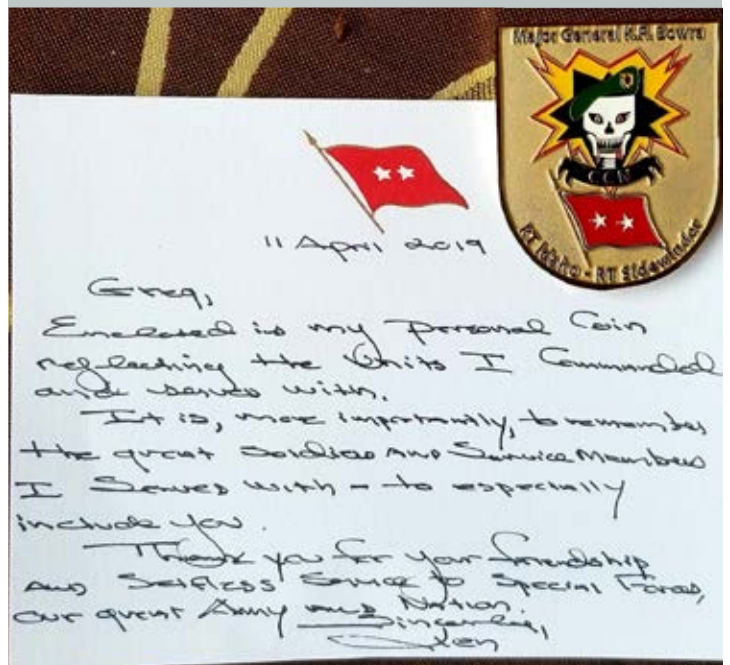 Major General K.R. Bowra
CCN
RT Idaho - RT Sidewinder
11 April 2019
Greg,
Enclosed is my personal Coin
reflecting the Units I Commanded
and served with.
It is, more importantly, to remember
the great Soldiers AND Service Members
I Served with - to especially
include you.
Thank you for your friendship
AND Selfless Service to Special Forces,
our great Army AND Nation.
Sincerely,
Ken